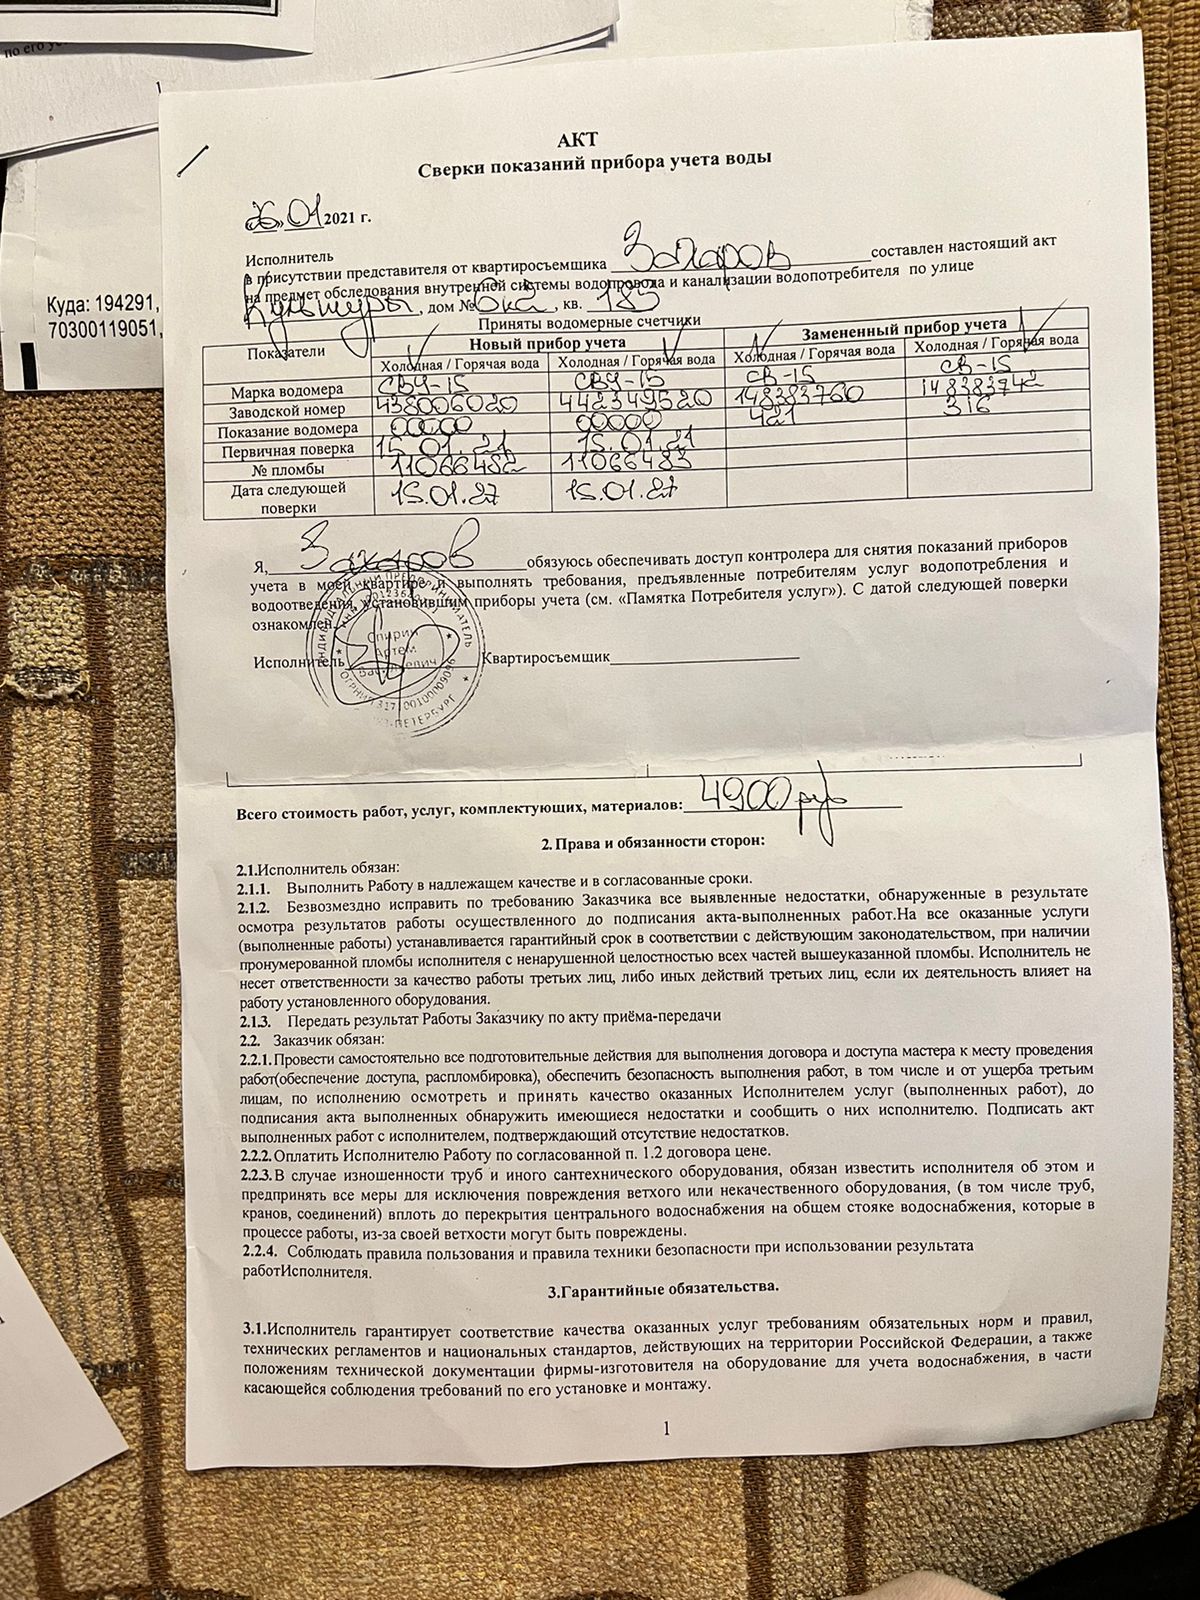 по его ус
1
Куда: 194291,
70300119051,
АКТ
Сверки показаний прибора учета воды
«26» 01 2021 г.
Исполнитель
в присутствии представителя от квартиросъемщика Захаров составлен настоящий акт
на предмет обследования внутренней системы водопровода и канализации водопотребителя по улице
Культуры, дом № , кв. 185
Приняты водомерные счетчики
Показатели Новый прибор учета Замененный прибор учета
Холодная / Горячая вода Холодная / Горячая вода Холодная / Горячая вода Холодная / Горячая вода
Марка водомера СВУ-15 СВУ-15 СВ-15 СВ-15
Заводской номер 438006020 442349520 148383760 148383742
Показание водомера 00000 00000 421 316
Первичная поверка 15.01.21 15.01.21
№ пломбы 11066482 11066483
Дата следующей поверки 15.01.27 15.01.27
Я, Захаров обязуюсь обеспечивать доступ контролера для снятия показаний приборов
учета в моей квартире и выполнять требования, предъявленные потребителям услуг водопотребления и
водоотведения, установившим приборы учета (см. «Памятка Потребителя услуг»). С датой следующей поверки
ознакомлен.
Исполнитель Квартиросъемщик
Спирин
Артем
Всего стоимость работ, услуг, комплектующих, материалов: 4900 руб
2. Права и обязанности сторон:
2.1.Исполнитель обязан:
2.1.1. Выполнить Работу в надлежащем качестве и в согласованные сроки.
2.1.2. Безвозмездно исправить по требованию Заказчика все выявленные недостатки, обнаруженные в результате
осмотра результатов работы осуществленного до подписания акта-выполненных работ.На все оказанные услуги
(выполненные работы) устанавливается гарантийный срок в соответствии с действующим законодательством, при наличии
пронумерованной пломбы исполнителя с ненарушенной целостностью всех частей вышеуказанной пломбы. Исполнитель не
несет ответственности за качество работы третьих лиц, либо иных действий третьих лиц, если их деятельность влияет на
работу установленного оборудования.
2.1.3. Передать результат Работы Заказчику по акту приёма-передачи
2.2. Заказчик обязан:
2.2.1. Провести самостоятельно все подготовительные действия для выполнения договора и доступа мастера к месту проведения
работ(обеспечение доступа, распломбировка), обеспечить безопасность выполнения работ, в том числе и от ущерба третьим
лицам, по исполнению осмотреть и принять качество оказанных Исполнителем услуг (выполненных работ), до
подписания акта выполненных обнаружить имеющиеся недостатки и сообщить о них исполнителю. Подписать акт
выполненных работ с исполнителем, подтверждающий отсутствие недостатков.
2.2.2. Оплатить Исполнителю Работу по согласованной п. 1.2 договора цене.
2.2.3. В случае изношенности труб и иного сантехнического оборудования, обязан известить исполнителя об этом и
предпринять все меры для исключения повреждения ветхого или некачественного оборудования, (в том числе труб,
кранов, соединений) вплоть до перекрытия центрального водоснабжения на общем стояке водоснабжения, которые в
процессе работы, из-за своей ветхости могут быть повреждены.
2.2.4. Соблюдать правила пользования и правила техники безопасности при использовании результата
работИсполнителя.
3.Гарантийные обязательства.
3.1.Исполнитель гарантирует соответствие качества оказанных услуг требованиям обязательных норм и правил,
технических регламентов и национальных стандартов, действующих на территории Российской Федерации, а также
положениям технической документации фирмы-изготовителя на оборудование для учета водоснабжения, в части
касающейся соблюдения требований по его установке и монтажу.
1